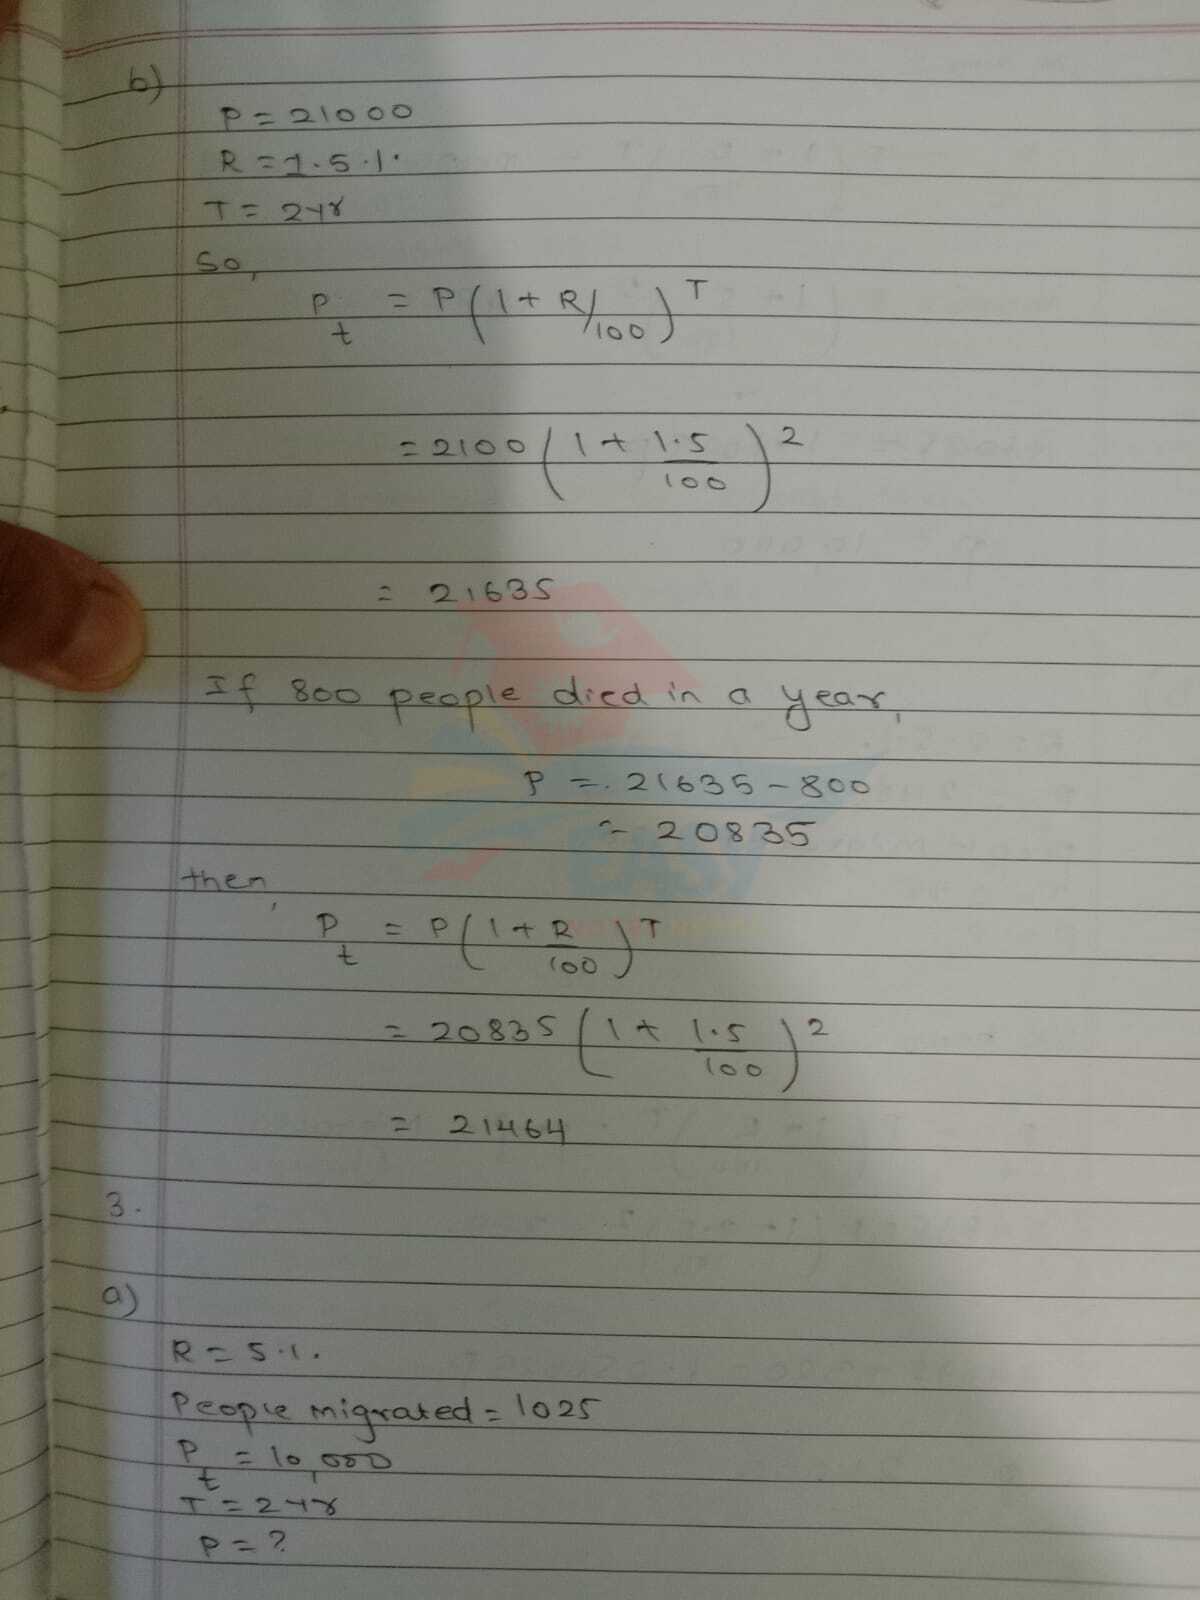 b)
P = 21000
R = 1.5 %
T = 2yr
So,
P_t = P(1 + R/100)^T
= 2100(1 + 1.5/100)^2
= 21635
If 800 people died in a year,
P =. 21635 - 800
= 20835
then,
P_t = P(1 + R/100)^T
= 20835(1 + 1.5/100)^2
= 21464
3.
a)
R = 5%.
People migrated = 1025
P_t = 10,000
T = 2yr
P = ?
EASY